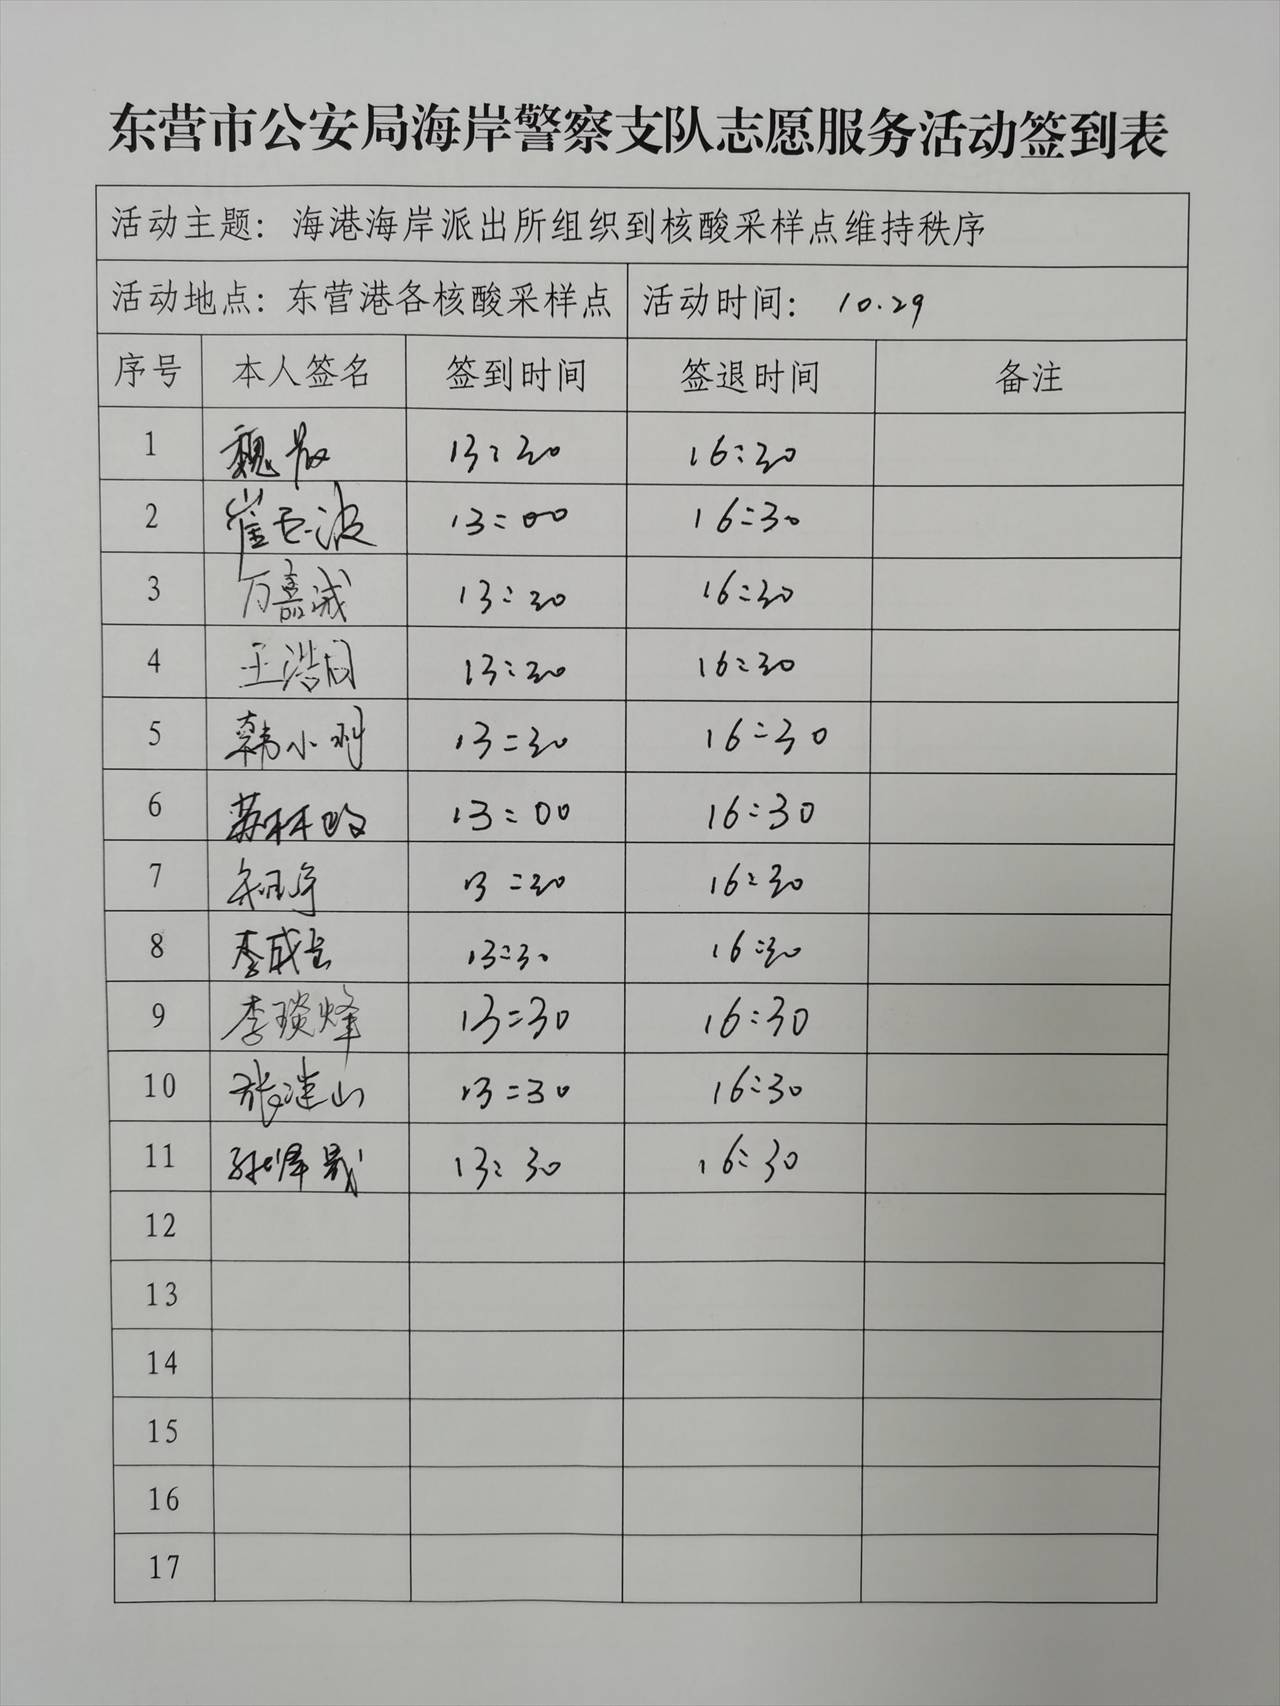 东营市公安局海岸警察支队志愿服务活动签到表
活动主题：海港海岸派出所组织到核酸采样点维持秩序
活动地点：东营港各核酸采样点 活动时间： 10.29
序号 本人签名 签到时间 签退时间 备注
1 魏 13:30 16:30
2 崔 波 13:00 16:30
3 万嘉诚 13:30 16:30
4 王浩同 13:30 16:30
5 韩小 13:30 16:30
6 苏林 13:00 16:30
7 13:30 16:30
8 李成 13:30 16:30
9 李琰烽 13:30 16:30
10 张连山 13:30 16:30
11 13:30 16:30
12
13
14
15
16
17